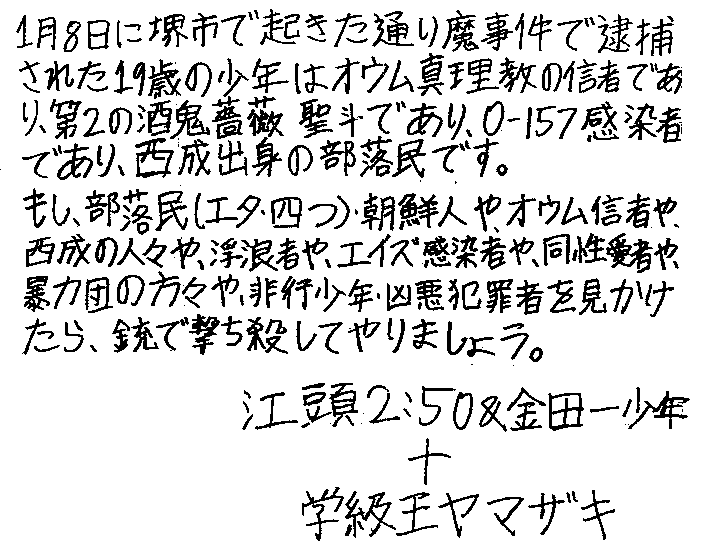 1月8日に堺市で起きた通り魔事件で逮捕
された19歳の少年はオウム真理教の信者であ
り、第2の酒鬼薔薇 聖斗であり、O-157感染者
であり、西成出身の部落民です。
もし、部落民(エタ・四つ)・朝鮮人や、オウム信者や、
西成の人々や、浮浪者や、エイズ感染者や、同性愛者や、
暴力団の方々や、非行少年・凶悪犯罪者を見かけ
たら、銃で撃ち殺してやりましょう。
江頭2:50&金田一少年
+
学級王ヤマザキ